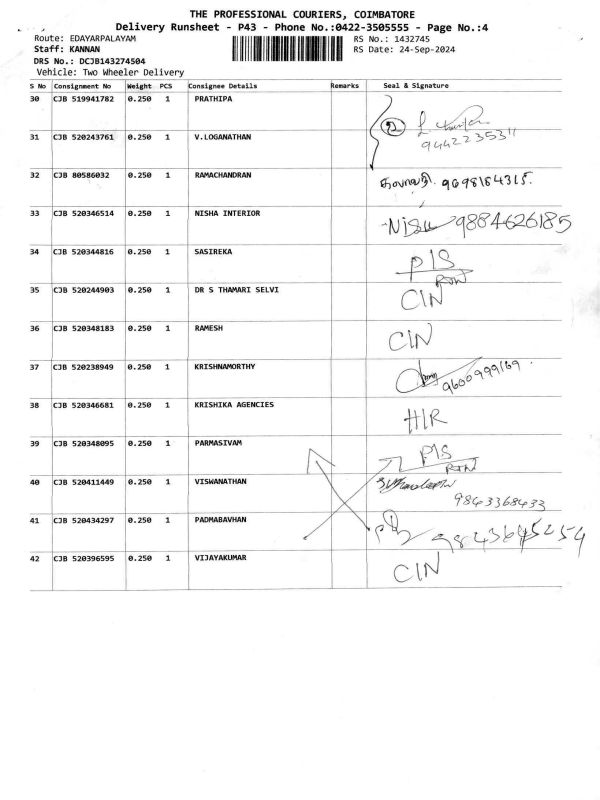 THE PROFESSIONAL COURIERS, COIMBATORE
Delivery Runsheet - P43 - Phone No.:0422-3505555 - Page No.:4
Route: EDAYARPALAYAM RS No.: 1432745
Staff: KANNAN RS Date: 24-Sep-2024
DRS No.: DCJB143274504
Vehicle: Two Wheeler Delivery
S No Consignment No Weight PCS Consignee Details Remarks Seal & Signature
30 CJB 519941782 0.250 1 PRATHIPA 2
9442235311
31 CJB 520243761 0.250 1 V.LOGANATHAN
32 CJB 80586032 0.250 1 RAMACHANDRAN 9698164315.
33 CJB 520346514 0.250 1 NISHA INTERIOR 9884626185
34 CJB 520344816 0.250 1 SASIREKA P/S
RTN
35 CJB 520244903 0.250 1 DR S THAMARI SELVI C/N
36 CJB 520348183 0.250 1 RAMESH C/N
37 CJB 520238949 0.250 1 KRISHNAMORTHY 9600999169
38 CJB 520346681 0.250 1 KRISHIKA AGENCIES H/R
39 CJB 520348095 0.250 1 PARMASIVAM P/S
RTN
40 CJB 520411449 0.250 1 VISWANATHAN
9843368433
41 CJB 520434297 0.250 1 PADMABAVHAN 9843645254
42 CJB 520396595 0.250 1 VIJAYAKUMAR C/N